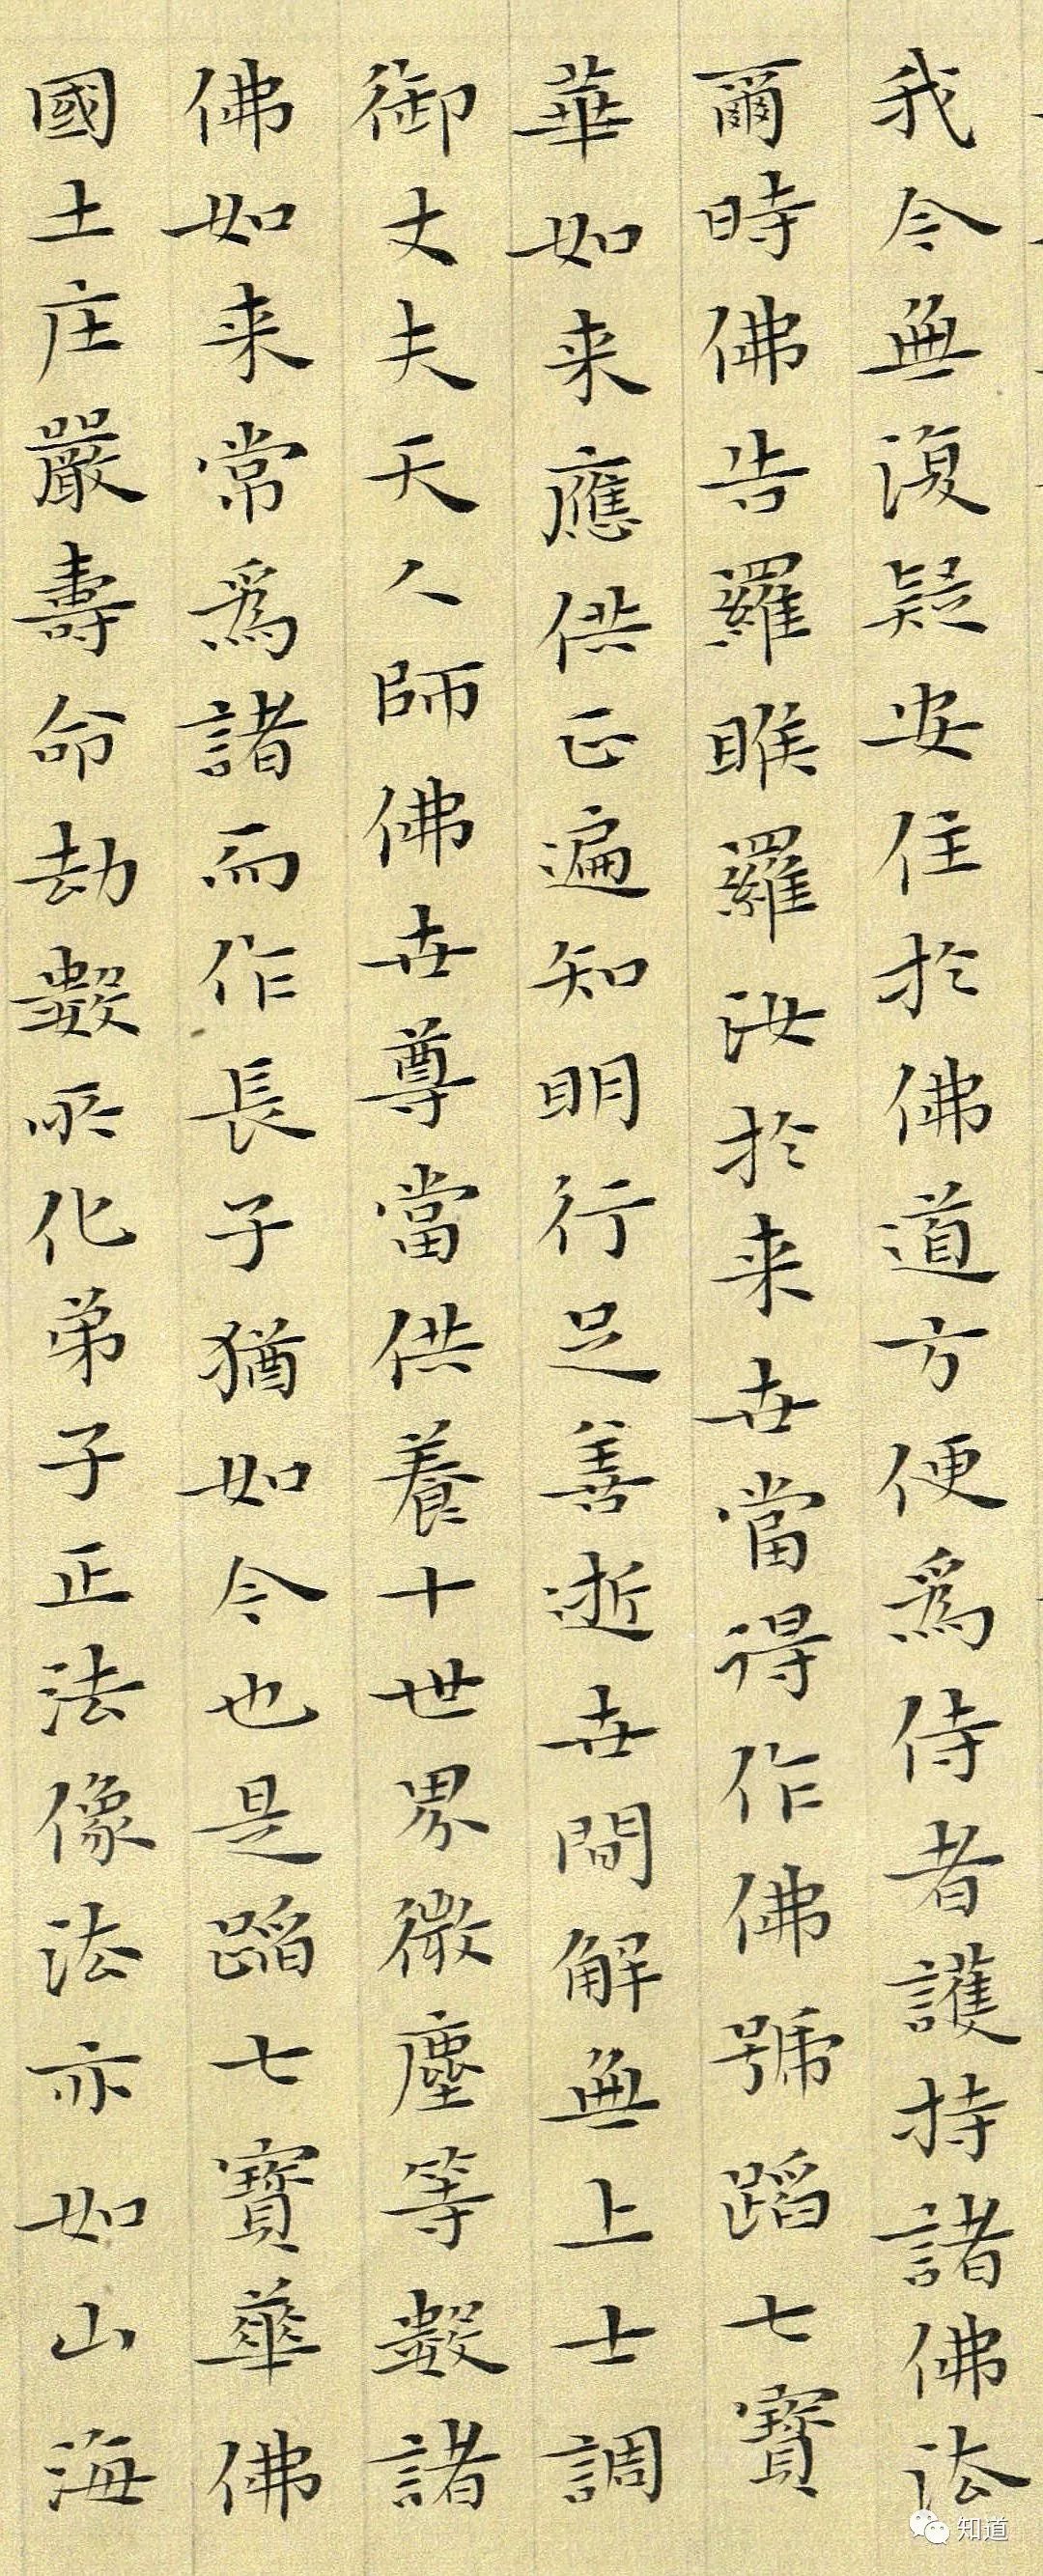 我今無復疑安住於佛道方便為侍者護持諸佛法
爾時佛告羅睺羅汝於来世當得作佛號蹈七寶
華如来應供正遍知明行足善逝世間解無上士調
御丈夫天人師佛世尊當供養十世界微塵等數諸
佛如来常為諸而作長子猶如今也是蹈七寶華佛
國土庄嚴壽命劫數所化弟子正法像法亦如山海
知道